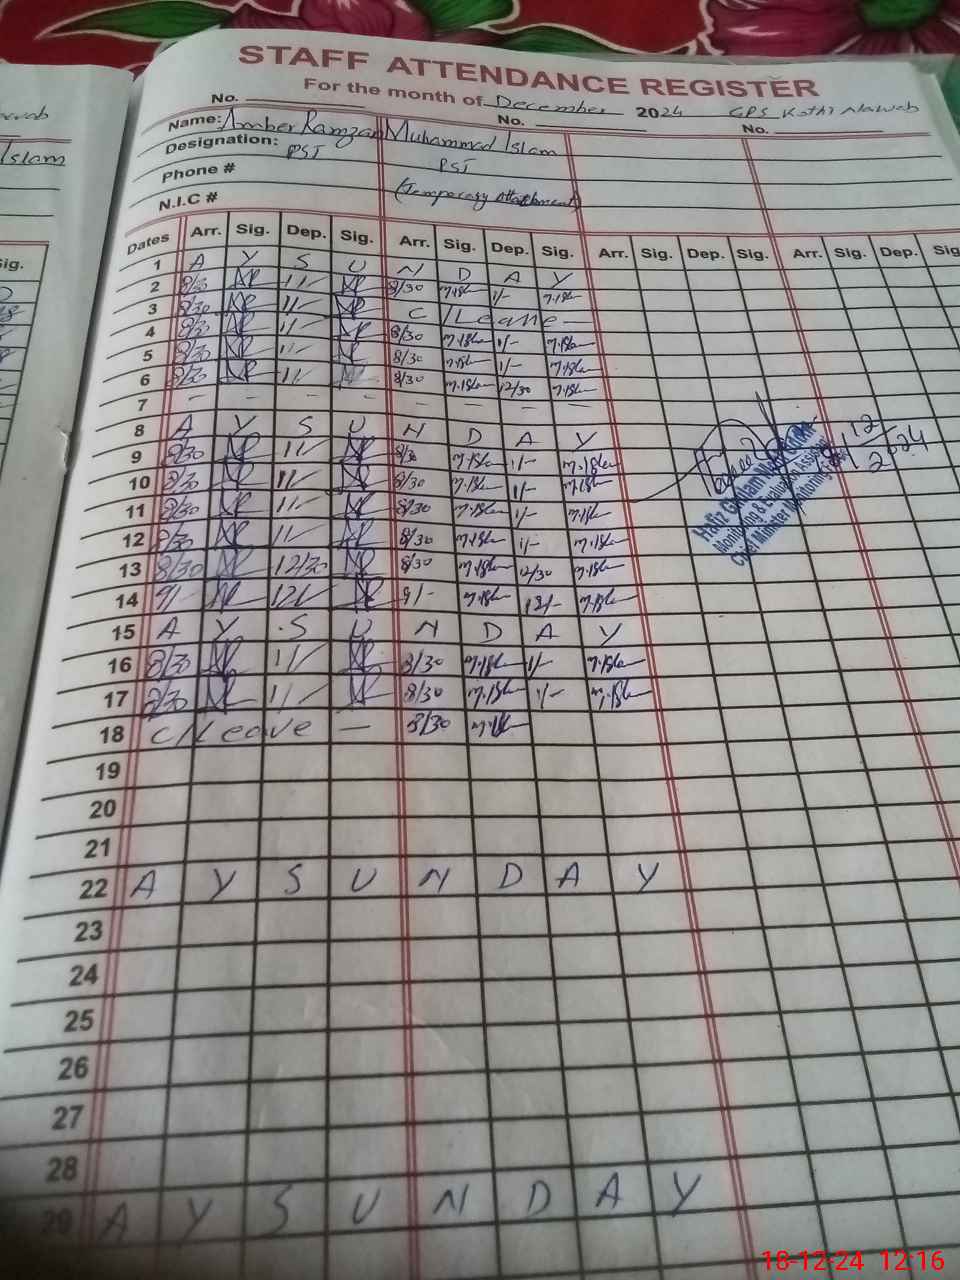 STAFF ATTENDANCE REGISTER
For the month of December 2024 GPS Kothi Nawab
No. No. No.
Name: Amber Ramzan Muhammad Islam
Designation: PST PST
Phone # (Temporary Attachment)
N.I.C #
Islam
Dates Arr. Sig. Dep. Sig. Arr. Sig. Dep. Sig. Arr. Sig. Dep. Sig. Arr. Sig. Dep. Sig
1 A Y S U N D A Y
2 8/30 1/- 8/30 m.Islam 1/- m.Islam
3 8/30 1/- C/Leave -
4 8/30 1/- 8/30 m.Islam 1/- m.Islam
5 8/30 1/- 8/30 m.Islam 1/- m.Islam
6 8/30 1/- 8/30 m.Islam 12/30 m.Islam
7 - - - - - - - -
8 A Y S U N D A Y
9 8/30 1/- 8/30 m.Islam 1/- m.Islam
10 8/30 1/- 8/30 m.Islam 1/- m.Islam
11 8/30 1/- 8/30 m.Islam 1/- m.Islam
12 8/30 1/- 8/30 m.Islam 1/- m.Islam
13 8/30 12/30 8/30 m.Islam 12/30 m.Islam
14 9/- 12/- 9/- m.Islam 12/- m.Islam
15 A Y S U N D A Y
16 8/30 1/- 8/30 m.Islam 1/- m.Islam
17 8/30 1/- 8/30 m.Islam 1/- m.Islam
18 C/Leave - 8/30 m.Islam
19
20
21
22 A Y S U N D A Y
23
24
25
26
27
28
29 A Y S U N D A Y
Hafiz Ghulam
Monitoring & Evaluation Assistant
Chief Minister Monitoring Force
18-12-24 12:16